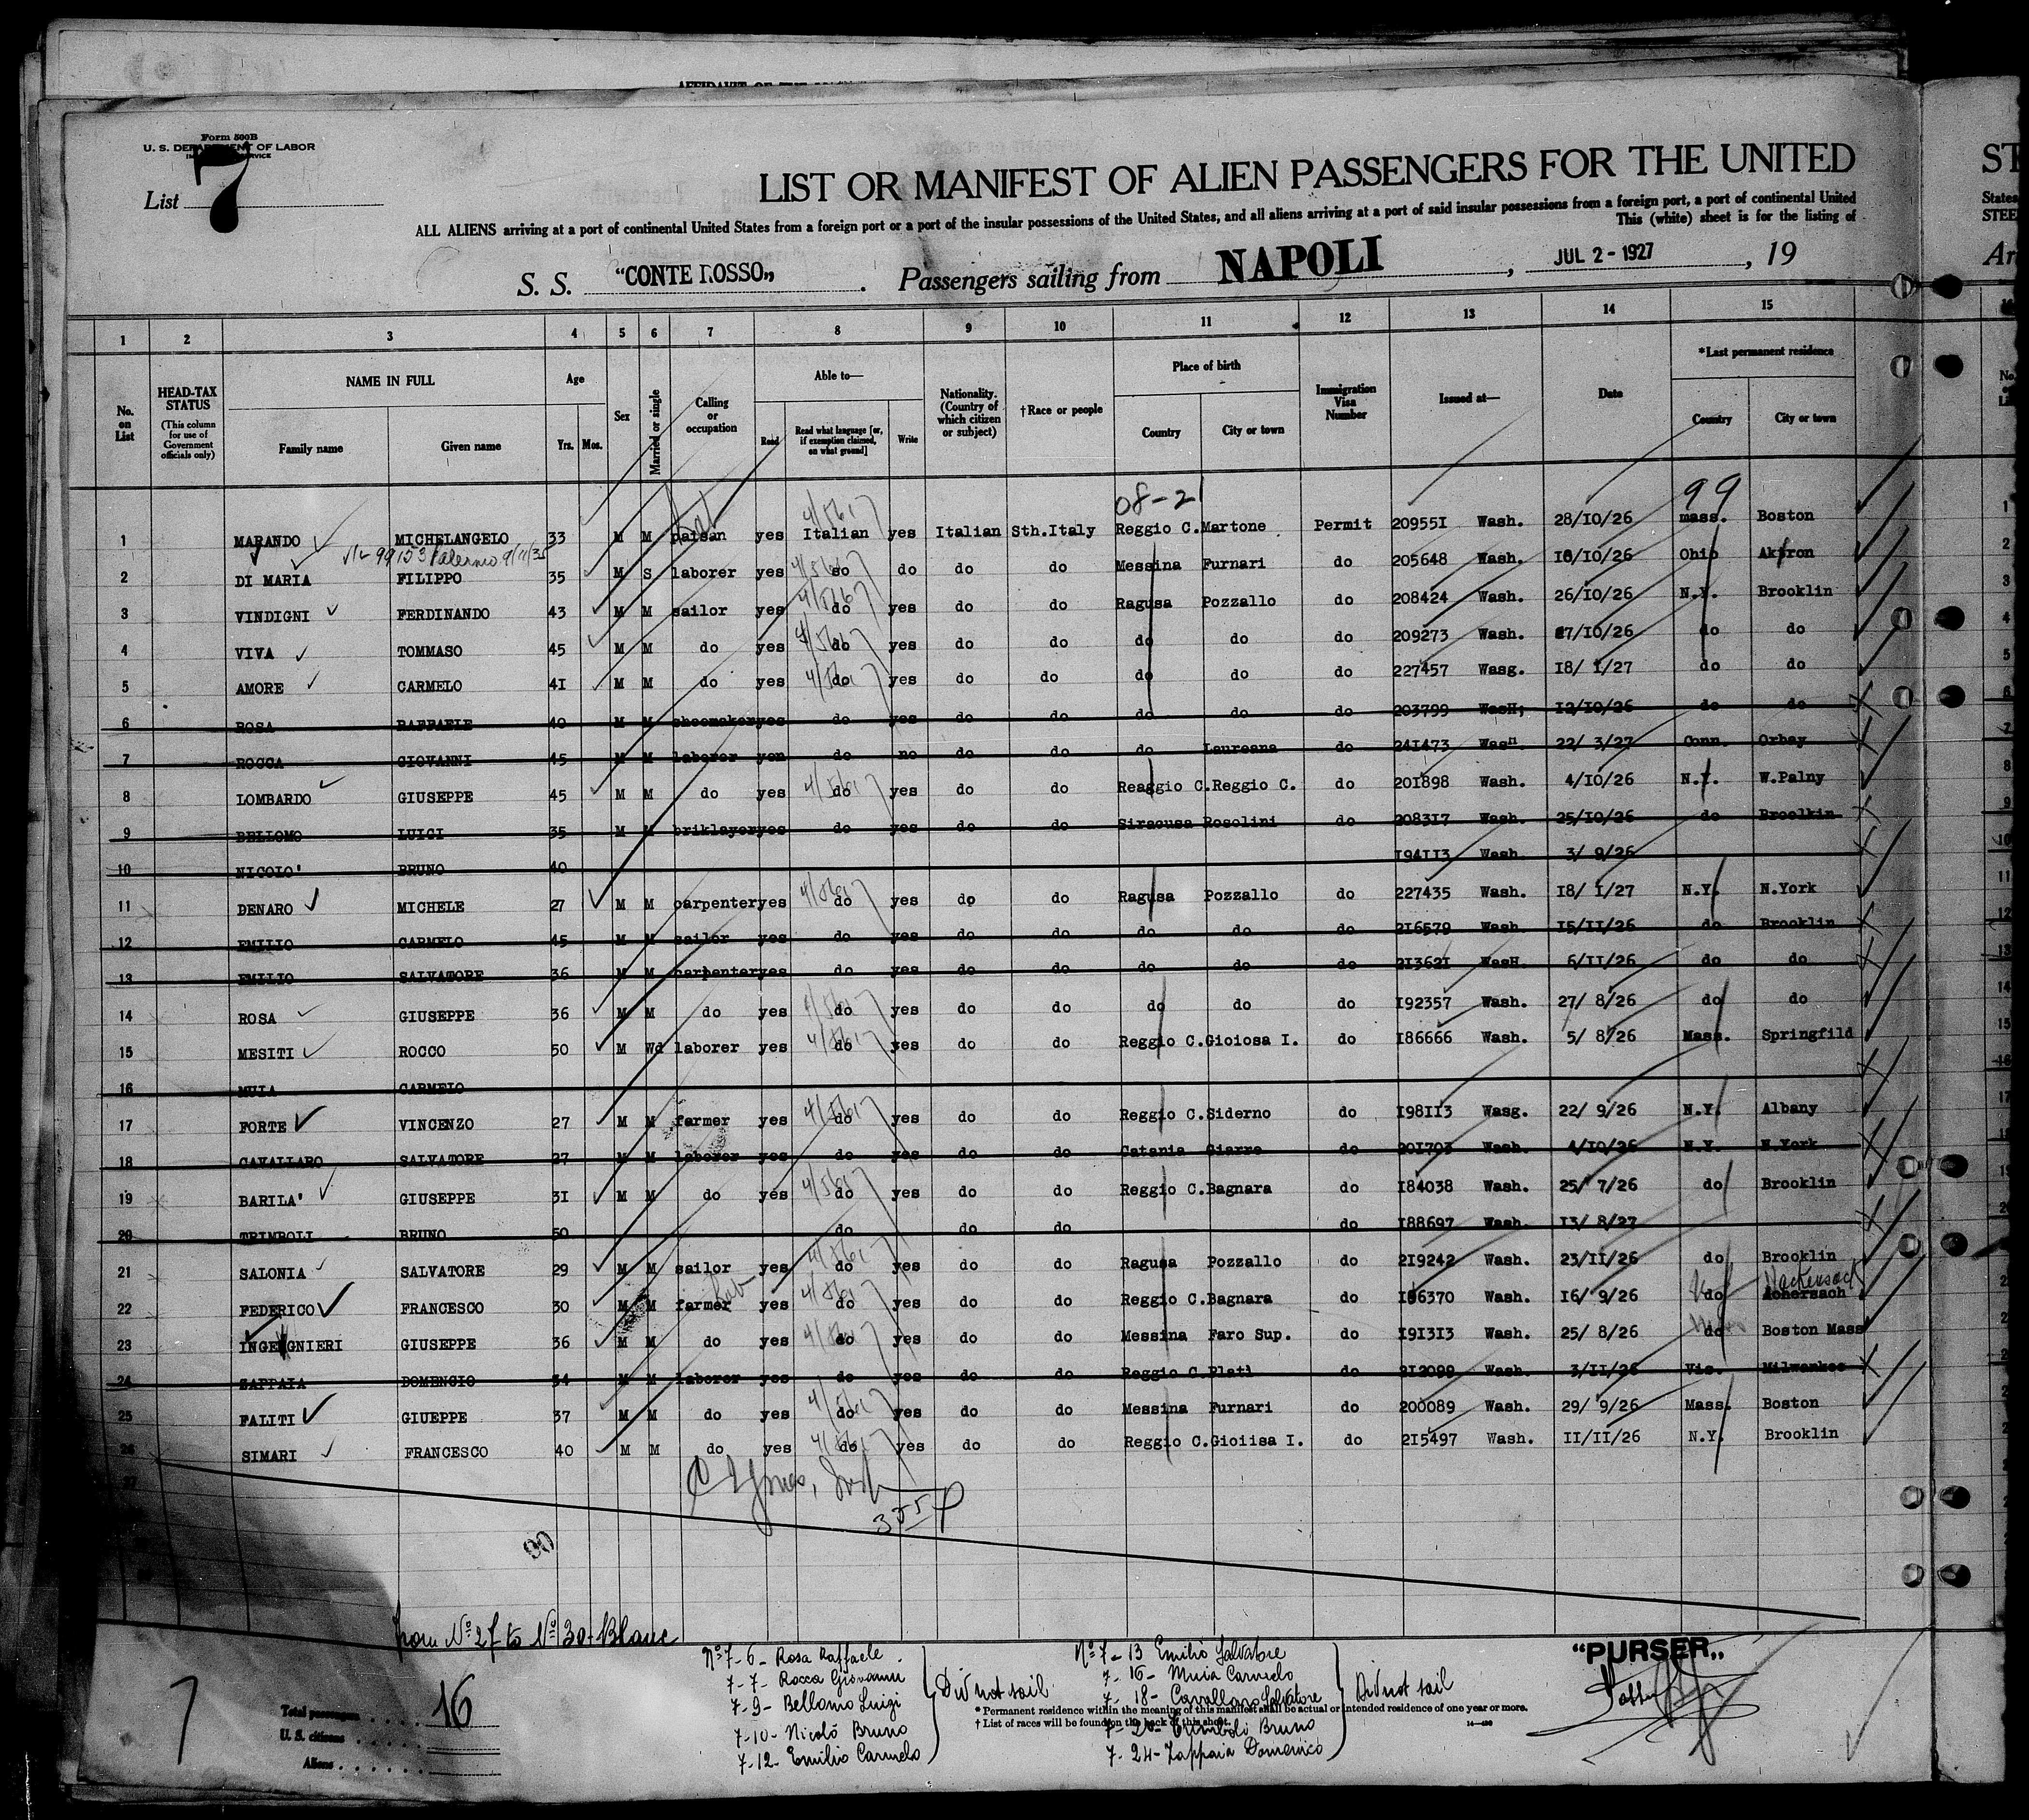 AFFIDAVIT OF THE
Form 500B
U. S. DEPARTMENT OF LABOR
List 7
LIST OR MANIFEST OF ALIEN PASSENGERS FOR THE UNITED
ST
ALL ALIENS arriving at a port of continental United States from a foreign port or a port of the insular possessions of the United States, and all aliens arriving at a port of said insular possessions from a foreign port, a port of continental United
States
This (white) sheet is for the listing of
STEE
S. S. "CONTE ROSSO„ . Passengers sailing from NAPOLI , JUL 2 - 1927 , 19
Ar
1 2 3 4 5 6 7 8 9 10 11 12 13 14 15
No. on List
HEAD-TAX STATUS (This column for use of Government officials only)
NAME IN FULL
Family name Given name
Age
Yrs. Mos.
Sex
Married or single
Calling or occupation
Able to—
Read Read what language [or, if exemption claimed, on what ground] Write
Nationality. (Country of which citizen or subject)
†Race or people
Place of birth
Country City or town
Immigration Visa Number
Issued at—
Date
*Last permanent residence
Country City or town
08-21 99
1 MARANDO MICHELANGELO 33 M M paisan yes Italian yes Italian Sth.Italy Reggio C. Martone Permit 209551 Wash. 28/10/26 mass. Boston
99153 Palermo 9/11/35
2 DI MARIA FILIPPO 35 M S laborer yes so do do do Messina Furnari do 205648 Wash. 18/10/26 Ohio Akron
3 VINDIGNI FERDINANDO 43 M M sailor yes do yes do do Ragusa Pozzallo do 208424 Wash. 26/10/26 N.Y. Brooklin
4 VIVA TOMMASO 45 M M do yes do yes do do do do do 209273 Wash. 27/10/26 do do
5 AMORE CARMELO 41 M M do yes do yes do do do do do 227457 Wasg. 18/ 1/27 do do
6 ROSA RAFFAELE 40 M M shoemaker yes do yes do do do do do 203799 WasH; 12/10/26 do do
7 ROCCA GIOVANNI 45 M M laborer yen do no do do do Laureana do 241473 WasH 22/ 3/27 Conn. Orbay
8 LOMBARDO GIUSEPPE 45 M M do yes do yes do do Reaggio C. Reggio C. do 201898 Wash. 4/10/26 N.Y. W.Palny
9 BELLOMO LUIGI 35 M M briklayer yes do yes do do Siracusa Rosolini do 208317 Wash. 25/10/26 do Broolkin
10 NICOLO' BRUNO 40 194113 Wash. 3/ 9/26
11 DENARO MICHELE 27 M M carpenter yes do yes do do Ragusa Pozzallo do 227435 Wash. 18/ 1/27 N.Y. N.York
12 EMILIO CARMELO 45 M M sailor yes do yes do do do do do 216579 Wash. 15/11/26 do Brooklin
13 EMILIO SALVATORE 36 M M carpenter yes do yes do do do do do 213621 WasH. 6/11/26 do do
14 ROSA GIUSEPPE 36 M M do yes do yes do do do do do 192357 Wash. 27/ 8/26 do do
15 MESITI ROCCO 50 M Wd laborer yes do yes do do Reggio C. Gioiosa I. do 186666 Wash. 5/ 8/26 Mass. Springfild
16 MUIA CARMELO
17 FORTE VINCENZO 27 M M farmer yes do yes do do Reggio C. Siderno do 198113 Wasg. 22/ 9/26 N.Y. Albany
18 CAVALLARO SALVATORE 27 M M laborer yes do yes do do Catania Giarre do 201703 Wash. 4/10/26 N.Y. N.York
19 BARILA' GIUSEPPE 31 M M do yes do yes do do Reggio C. Bagnara do 184038 Wash. 25/ 7/26 do Brooklin
20 TRIMBOLI BRUNO 50 do do do do 188697 Wash. 13/ 8/27
21 SALONIA SALVATORE 29 M M sailor yes do yes do do Ragusa Pozzallo do 219242 Wash. 23/11/26 do Brooklin
Hackensack
22 FEDERICO FRANCESCO 30 M M farmer yes do yes do do Reggio C. Bagnara do 196370 Wash. 16/ 9/26 do Achersach
23 INGEGNIERI GIUSEPPE 36 M M do yes do yes do do Messina Faro Sup. do 191313 Wash. 25/ 8/26 do Boston Mass
24 ZAPPAIA DOMENCIO 34 M M laborer yes do yes do do Reggio C. Platì do 212099 Wash. 3/11/26 Vis. Milwankee
25 FALITI GIUEPPE 37 M M do yes do yes do do Messina Furnari do 200089 Wash. 29/ 9/26 Mass. Boston
26 SIMARI FRANCESCO 40 M M do yes do yes do do Reggio C. Gioiisa I. do 215497 Wash. 11/11/26 N.Y. Brooklin
27
90
from No 27 to No 30 - Blanc
No 7-6- Rosa Raffaele
7-7- Rocca Giovanni
7-9- Bellomo Luigi
7-10- Nicoló Bruno
7-12- Emilio Carmelo
Did not sail
No 7-13 Emilio Salvatore
7-16- Muia Carmelo
7-18- Cavallaro Salvatore
7-20- Trimboli Bruno
7-24- Zappaia Domenico
Did not sail
"PURSER„
7
Total passengers 16
U. S. citizens
Aliens
* Permanent residence within the meaning of this manifest shall be actual or intended residence of one year or more.
† List of races will be found on the back of this sheet.
14—480